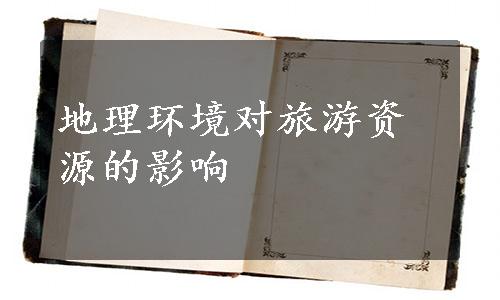 地理环境对旅游资
源的影响